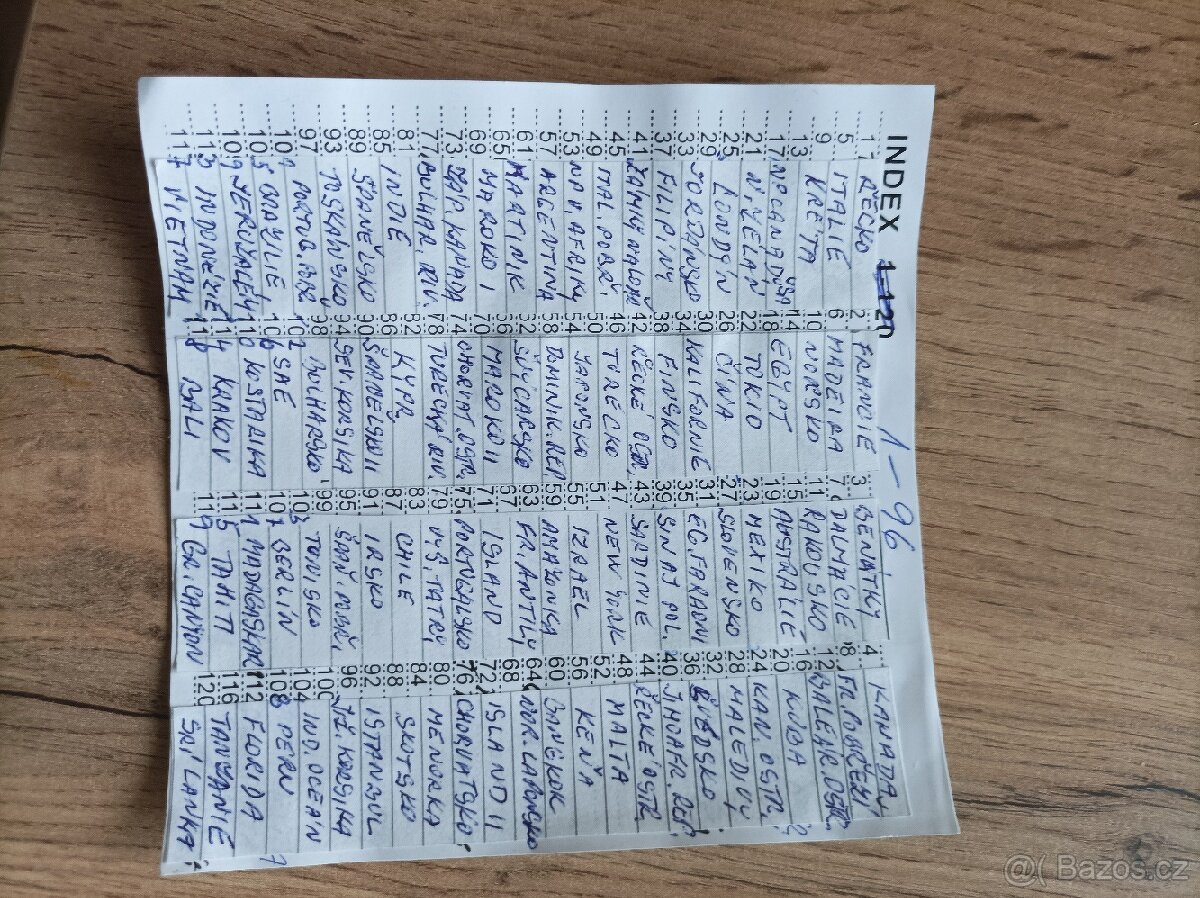 INDEX 1-120
1 - 96
1 ŘECKO 2 FRANCIE 3 BENÁTKY 4 KANADA
5 ITALIE 6 MADEIRA 7 DALMACIE 8 FR. POBŘEŽÍ
9 KRÉTA 10 NORSKO 11 RAKOUSKO 12 BALEAR. OSTR.
13 14 15 16
17 NP CANADUSA 18 EGYPT 19 AUSTRÁLIE 20 KUBA
21 N. ZÉLAN 22 TOKIO 23 MEXIKO 24 KAN. OSTR.
25 LONDÝN 26 ČÍNA 27 SLOVENSKO 28 MALEDIVY
29 30 31 32
33 JORDÁNSKO 34 KALIFORNIE 35 EG. FARAON 36 ŠVÉDSKO
37 FILIPÍNY 38 FINSKO 39 SINAJ POL. 40 JIHOAFR. REP.
41 ZÁMKY NA LOIŘE 42 ŘECKÉ OSTR. 43 SARDINIE 44 ŘECKÉ OSTR.
45 46 47 48
49 ITAL. POBŘ. 50 TURECKO 51 NEW YORK 52 MALTA
53 NP J. AFRIKY 54 JAPONSKO 55 IZRAEL 56 KEŇA
57 ARGENTINA 58 DOMINIK. REP. 59 AMAZONKA 60 BANGKOK
61 MARTINIK 62 ŠVÝCARSKO 63 FR. ANTILY 64 NOR. LAPONSKO
65 66 67 68
69 MAROKO I 70 MAROKO II 71 ISLAND 72 ISLAND II
73 ZÁP. KANADA 74 CHORVAT. OSTR. 75 PORTUGALSKO 76 CHORVATSKO
77 BULHAR. RIV. 78 TURECKÁ RIV. 79 V.Š. TATRY 80 MENORKA
81 INDIE 82 KYPR 83 CHILE 84 SKOTSKO
85 86 87 88
89 ŠPANĚLSKO 90 ŠPANĚLSKO II 91 IRSKO 92 ISTANBUL
93 TOSKÁNSKO 94 SEV. KORSIKA 95 ŠPAŇ. POBŘ. 96 JIŽ. KORSIKA
97 PORTUG. POBŘ. 98 BULHARSKO 99 TUNISKO 100 IND. OCEÁN
101 102 103 104
105 BRAZILIE 106 SAE 107 BERLÍN 108 PERU
109 JERUZALÉM 110 KOSTARIKA 111 MADAGASKAR 112 FLORIDA
113 INDONÉSIE 114 KRAKOV 115 TAHITI 116 TANZANIE
117 VIETNAM 118 BALI 119 GR. CANYON 120 SRI LANKA
Bazoš.cz